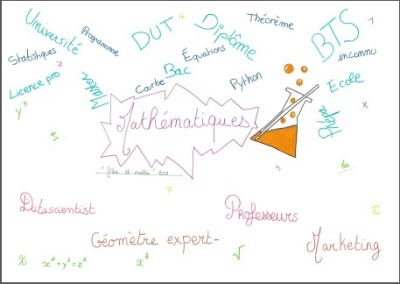 Université
Programme
DUT
4
Diplôme
Théorème
BTS
1
Statistiques
2
Équations
inconnu
Licence pro
Master
Courbe
Bac
Python
Ecole
y³
Mathématiques
x
±
7
9
6
Datascientist
Professeurs
Σ
Géomètre expert
Marketing
%
x² + y² = z²
x²
√